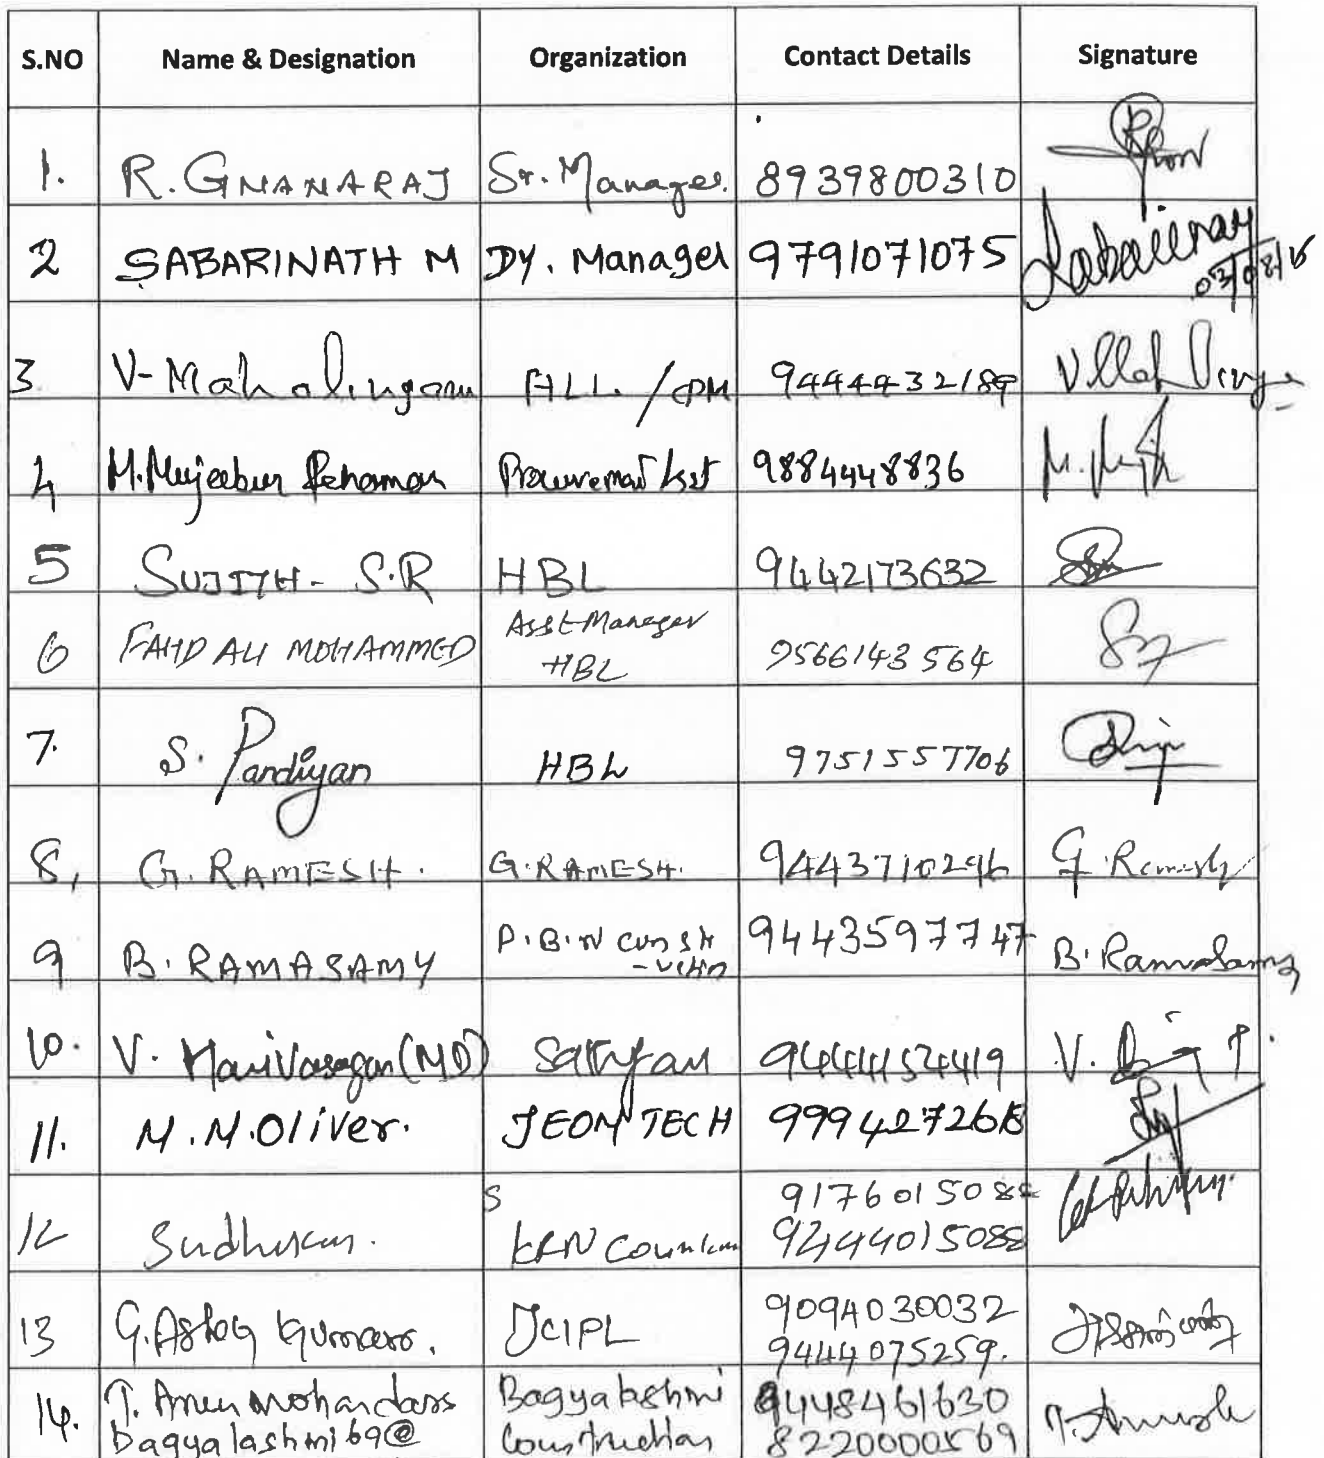 S.NO Name & Designation Organization Contact Details Signature
1. R. GNANARAJ Sr. Manager. 8939800310
2 SABARINATH M DY. Manager 9791071075 Sabarinath
03/08/15
3. V-Mahalingam ALL. / CPM 9444432189
4 M. Mujeebur Rehaman Procurement 9884448836
5 SUJITH- S.R HBL 9442173632
6 FAHD ALI MOHAMMED Asst Manager
HBL 9566143564
7. S. Pandiyan HBL 9751557706
8, G. RAMESH. G. RAMESH. 9443710296 G. Ramesh
9 B. RAMASAMY P.B.N constr
-uction 9443597747 B. Ramasamy
10. V. Manivasagan (MD) Sathyam 9444154419 V.
11. M.M.Oliver. JEON TECH
12 Sudhakar. KRN 9176015088
9444015088
13 G. Ashog Kumar. JCIPL 9094030032
9444075259.
14. T. Arun mohandass Bagyalakshmi 9448461630
bagyalashmi69@ Construction 8220000569